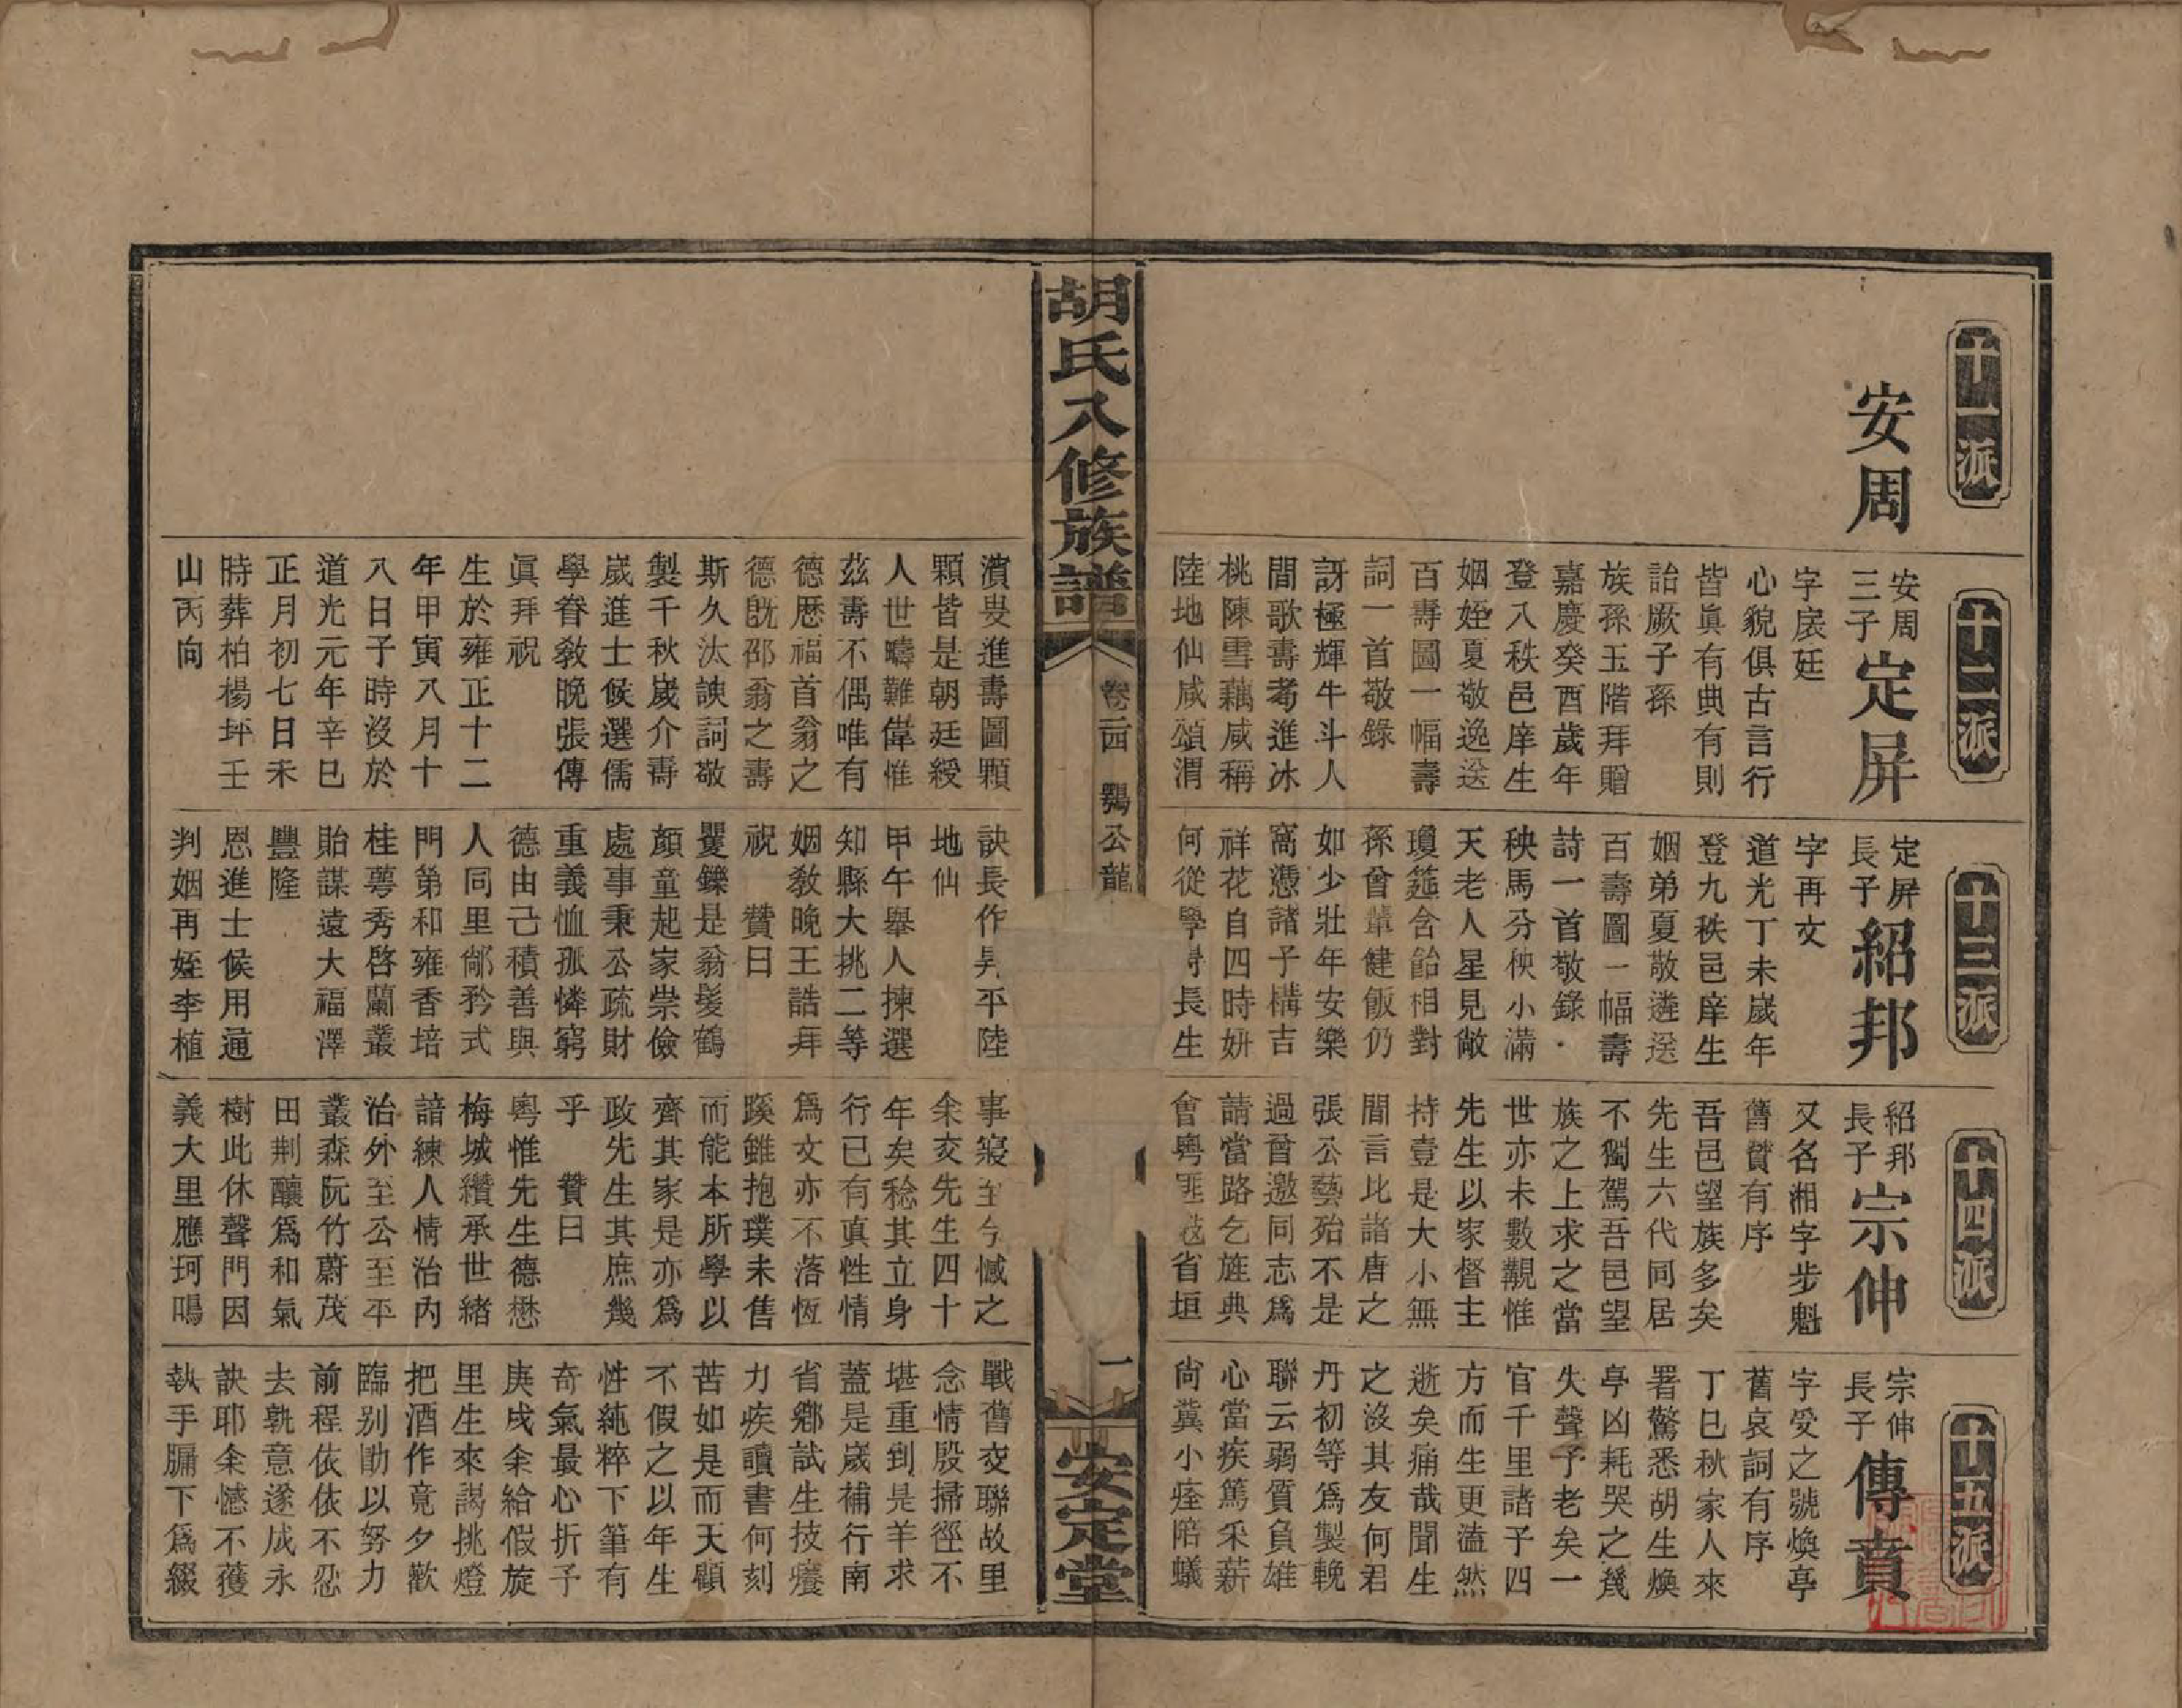 十一派
安周
十二派
安周
三子
定屏
字扆廷
心貌俱古言行
皆眞有典有則
詒厥子孫
族孫玉階拜贈
嘉慶癸酉歲年
登八秩邑庠生
姻姪夏敬逸送
百壽圖一幅壽
詞一首敬錄
訝極輝牛斗人
間歌壽考進冰
桃陳雪藕咸稱
陸地仙咸頌渭
濱叟進壽圖顆
顆皆是朝廷綬
人世疇難偉惟
茲壽不偶唯有
德厯福首翁之
德旣邵翁之壽
斯久汰諛詞敬
製千秋嵗介壽
嵗進士候選儒
學眷敎晚張傳
眞拜祝
生於雍正十二
年甲寅八月十
八日子時沒於
道光元年辛巳
正月初七日未
時葬柏楊坪壬
山丙向
十三派
定屏
長子
紹邦
字再文
道光丁未嵗年
登九秩邑庠生
姻弟夏敬遴送
百壽圖一幅壽
詩一首敬錄
秧馬分秧小滿
天老人星見敞
瓊筵含飴相對
孫曾輩健飯仍
如少壯年安樂
窩憑諸子構吉
祥花自四時妍
何從學得長生
訣長作昇平陸
地仙
甲午舉人揀選
知縣大挑二等
姻敎晚王誥拜
祝　贊曰
矍鑠是翁髮鶴
顏童起家崇儉
處事秉公疏財
重義恤孤憐窮
德由己積善與
人同里鄰矜式
門第和雍香培
桂蕚秀啓蘭叢
貽謀遠大福澤
豐隆
恩進士候用通
判姻再姪李植
十四派
紹邦
長子
宗伸
又名湘字步魁
舊贊有序
吾邑望族多矣
先生六代同居
不獨駕吾邑望
族之上求之當
世亦未數覯惟
先生以家督主
持壹是大小無
間言比諸唐之
張公藝殆不是
過曾邀同志爲
請當路乞旌典
會粵匪寇省垣
事寢至今憾之
余交先生四十
年矣稔其立身
行已有眞性情
爲文亦不落恆
蹊雖抱璞未售
而能本所學以
齊其家是亦爲
政先生其庶幾
乎　贊曰
粵惟先生德懋
梅城纘承世緒
諳練人情治內
治外至公至平
叢森阮竹蔚茂
田荆釀爲和氣
樹此休聲門因
義大里應珂鳴
十五派
宗伸
長子
傳賁
字受之號煥亭
舊哀詞有序
丁巳秋家人來
署驚悉胡生煥
亭凶耗哭之幾
失聲予老矣一
官千里諸子四
方而生更溘然
逝矣痛哉聞生
之沒其友何君
丹初等爲製輓
聯云弱質負雄
心當疾篤采薪
尙冀小痊陪蟻
戰舊交聯故里
念情殷掃徑不
堪重到是羊求
蓋是嵗補行南
省鄉試生技癢
力疾讀書何刻
苦如是而天顧
不假之以年生
性純粹下筆有
奇氣最心折予
庚戌余給假旋
里生來謁挑燈
把酒作竟夕歡
臨别勖以努力
前程依依不忍
去孰意遂成永
訣耶余憾不獲
執手牖下爲綴
胡氏八修族譜
卷二四　鶚公龍
一
安定堂